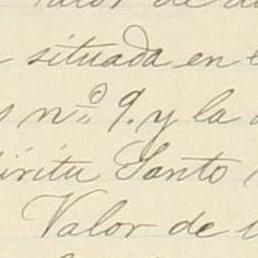 Valor de
situada en
nº 9. y la
Santo
Valor de